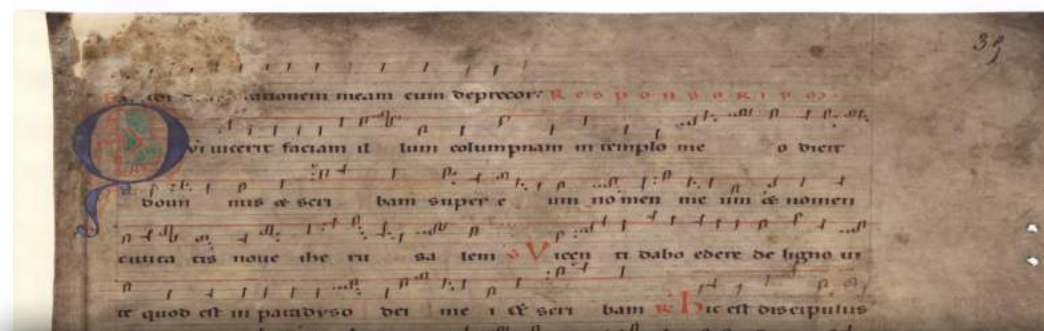 39
orationem meam cum deprecor. Responsorium.
Qvi uicerit faciam il lum columpnam in templo me o dicit
domi nus & scri bam super e um no men me um & nomen
ciuita tis noue ihe ru sa lem V Vicen ti dabo edere de ligno ui
te quod est in paradyso dei me i & scri bam R Hic est discipulus